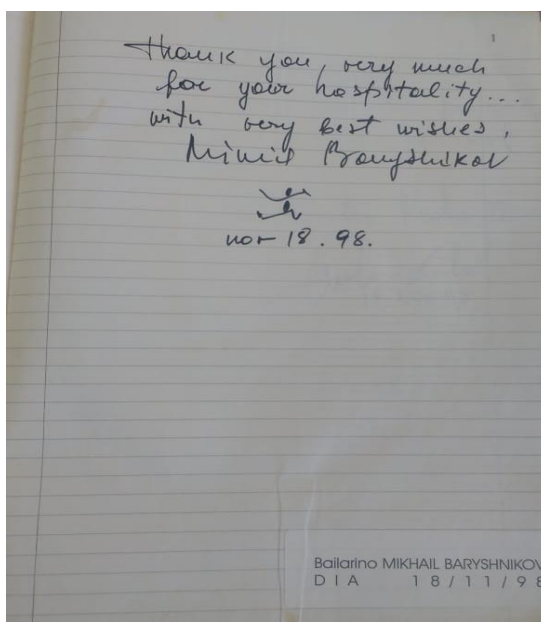 1
Thank you, very much
for your hospitality...
with very best wishes,
Baryshnikov
nov 18. 98.
Bailarino MIKHAIL BARYSHNIKOV
DIA 18/11/98